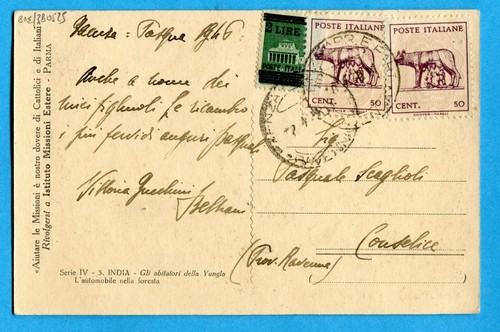 BOE/280525
Pasqua 1946
Anche a nome dei
miei figliuoli le ricambio
i più fervidi auguri pasquali
Vittoria
Sig.
Pasquale Scaglioli
Conselice
(Prov. Ravenna)
2 LIRE
POSTE ITALIANE
CENT. 50
POSTE ITALIANE
CENT. 50
«Aiutare le Missioni è nostro dovere di Cattolici e di Italiani»
Rivolgersi a Istituto Missioni Estere - PARMA
Serie IV - 3. INDIA - Gli abitatori della Yungla
L'automobile nella foresta